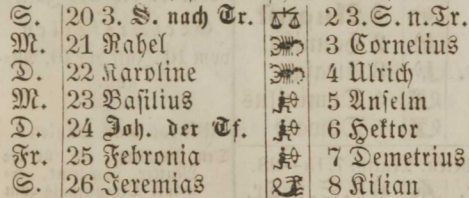 S. 20 3. S. nach Tr. 2 3.S. n.Tr.
M. 21 Rahel 3 Cornelius
D. 22 Karoline 4 Ulrich
M. 23 Basilius 5 Anselm
D. 24 Joh. der Tf. 6 Hektor
Fr. 25 Febronia 7 Demetrius
S. 26 Jeremias 8 Kilian